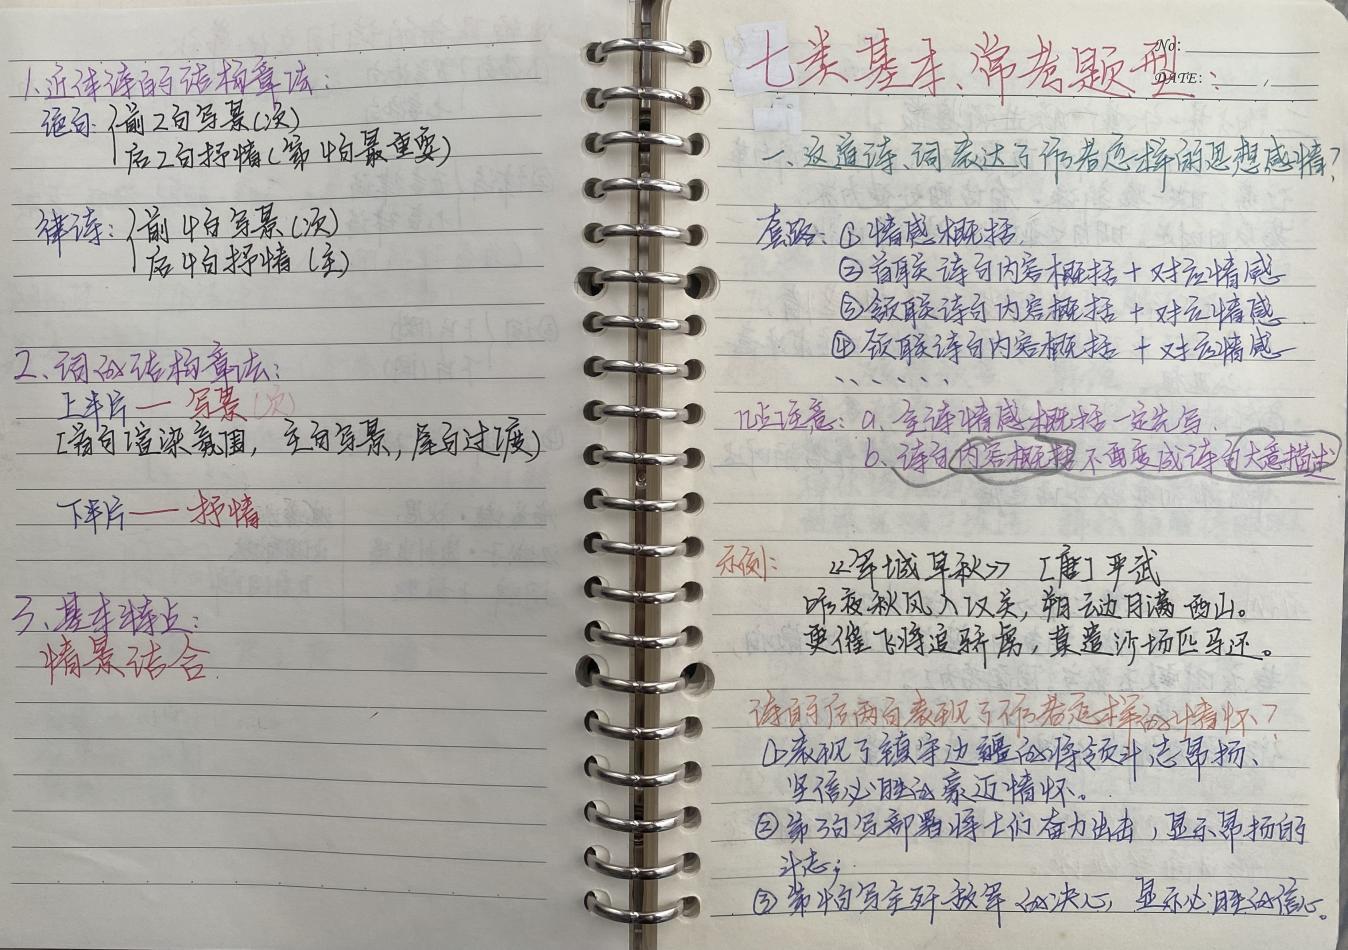 1、近体诗的结构章法:
绝句:{前2句写景(次)
后2句抒情(第4句最重要)
律诗:{前4句写景(次)
后4句抒情(主)
2、词的结构章法:
上半片—写景(次)
[首句渲染氛围,主句写景,尾句过渡)
下半片——抒情
3、基本特点:
情景结合.
七类基本、常考题型:
No:
DATE:
一、这首诗、词表达了作者怎样的思想感情?
套路:①情感概括.
②首联诗句内容概括+对应情感
③颔联诗句内容概括+对应情感
④颈联诗句内容概括+对应情感
、、、、、、
几点注意:a、全诗情感概括一定先写.
b、诗句内容概括不要变成诗句大意描述
示例: 《军城早秋》 [唐]严武
昨夜秋风入汉关,朔云边月满西山。
更催飞将追骄虏,莫遣沙场匹马还。
诗的后两句表现了作者怎样的情怀?
①表现了镇守边疆的将领斗志昂扬、
坚信必胜的豪迈情怀。
②第3句写部署将士们奋力出击,显示昂扬的
斗志;
③第4句写全歼敌军的决心,显示必胜的信心。